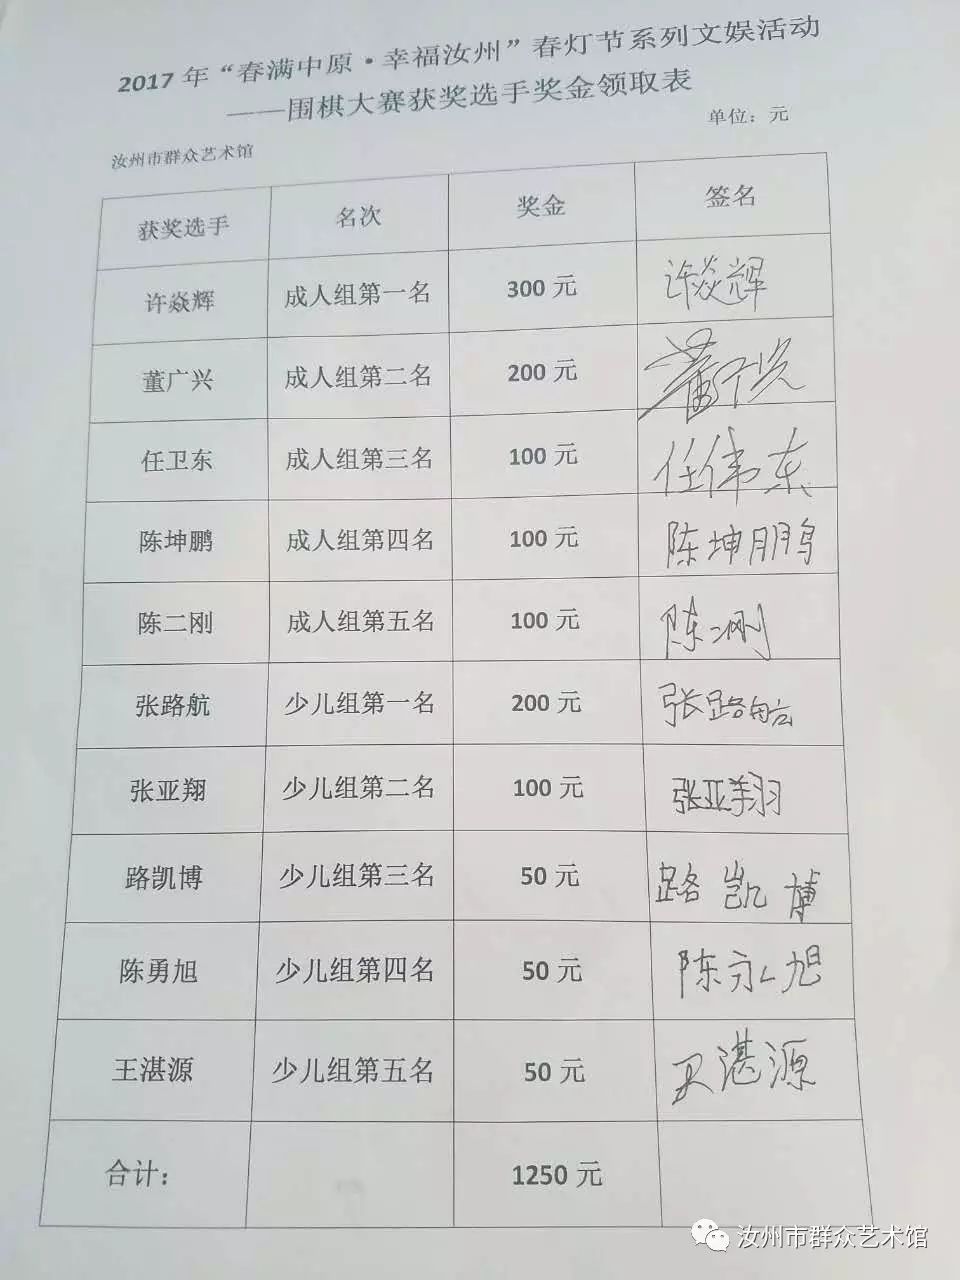 2017 年“春满中原·幸福汝州”春灯节系列文娱活动
——围棋大赛获奖选手奖金领取表
汝州市群众艺术馆 单位：元
获奖选手 名次 奖金 签名
许焱辉 成人组第一名 300 元 许焱辉
董广兴 成人组第二名 200 元 董广兴
任卫东 成人组第三名 100 元 任伟东
陈坤鹏 成人组第四名 100 元 陈坤鹏
陈二刚 成人组第五名 100 元 陈二刚
张路航 少儿组第一名 200 元 张路航
张亚翔 少儿组第二名 100 元 张亚翔
路凯博 少儿组第三名 50 元 路凯博
陈勇旭 少儿组第四名 50 元 陈永旭
王湛源 少儿组第五名 50 元 王湛源
合计： 1250 元
汝州市群众艺术馆